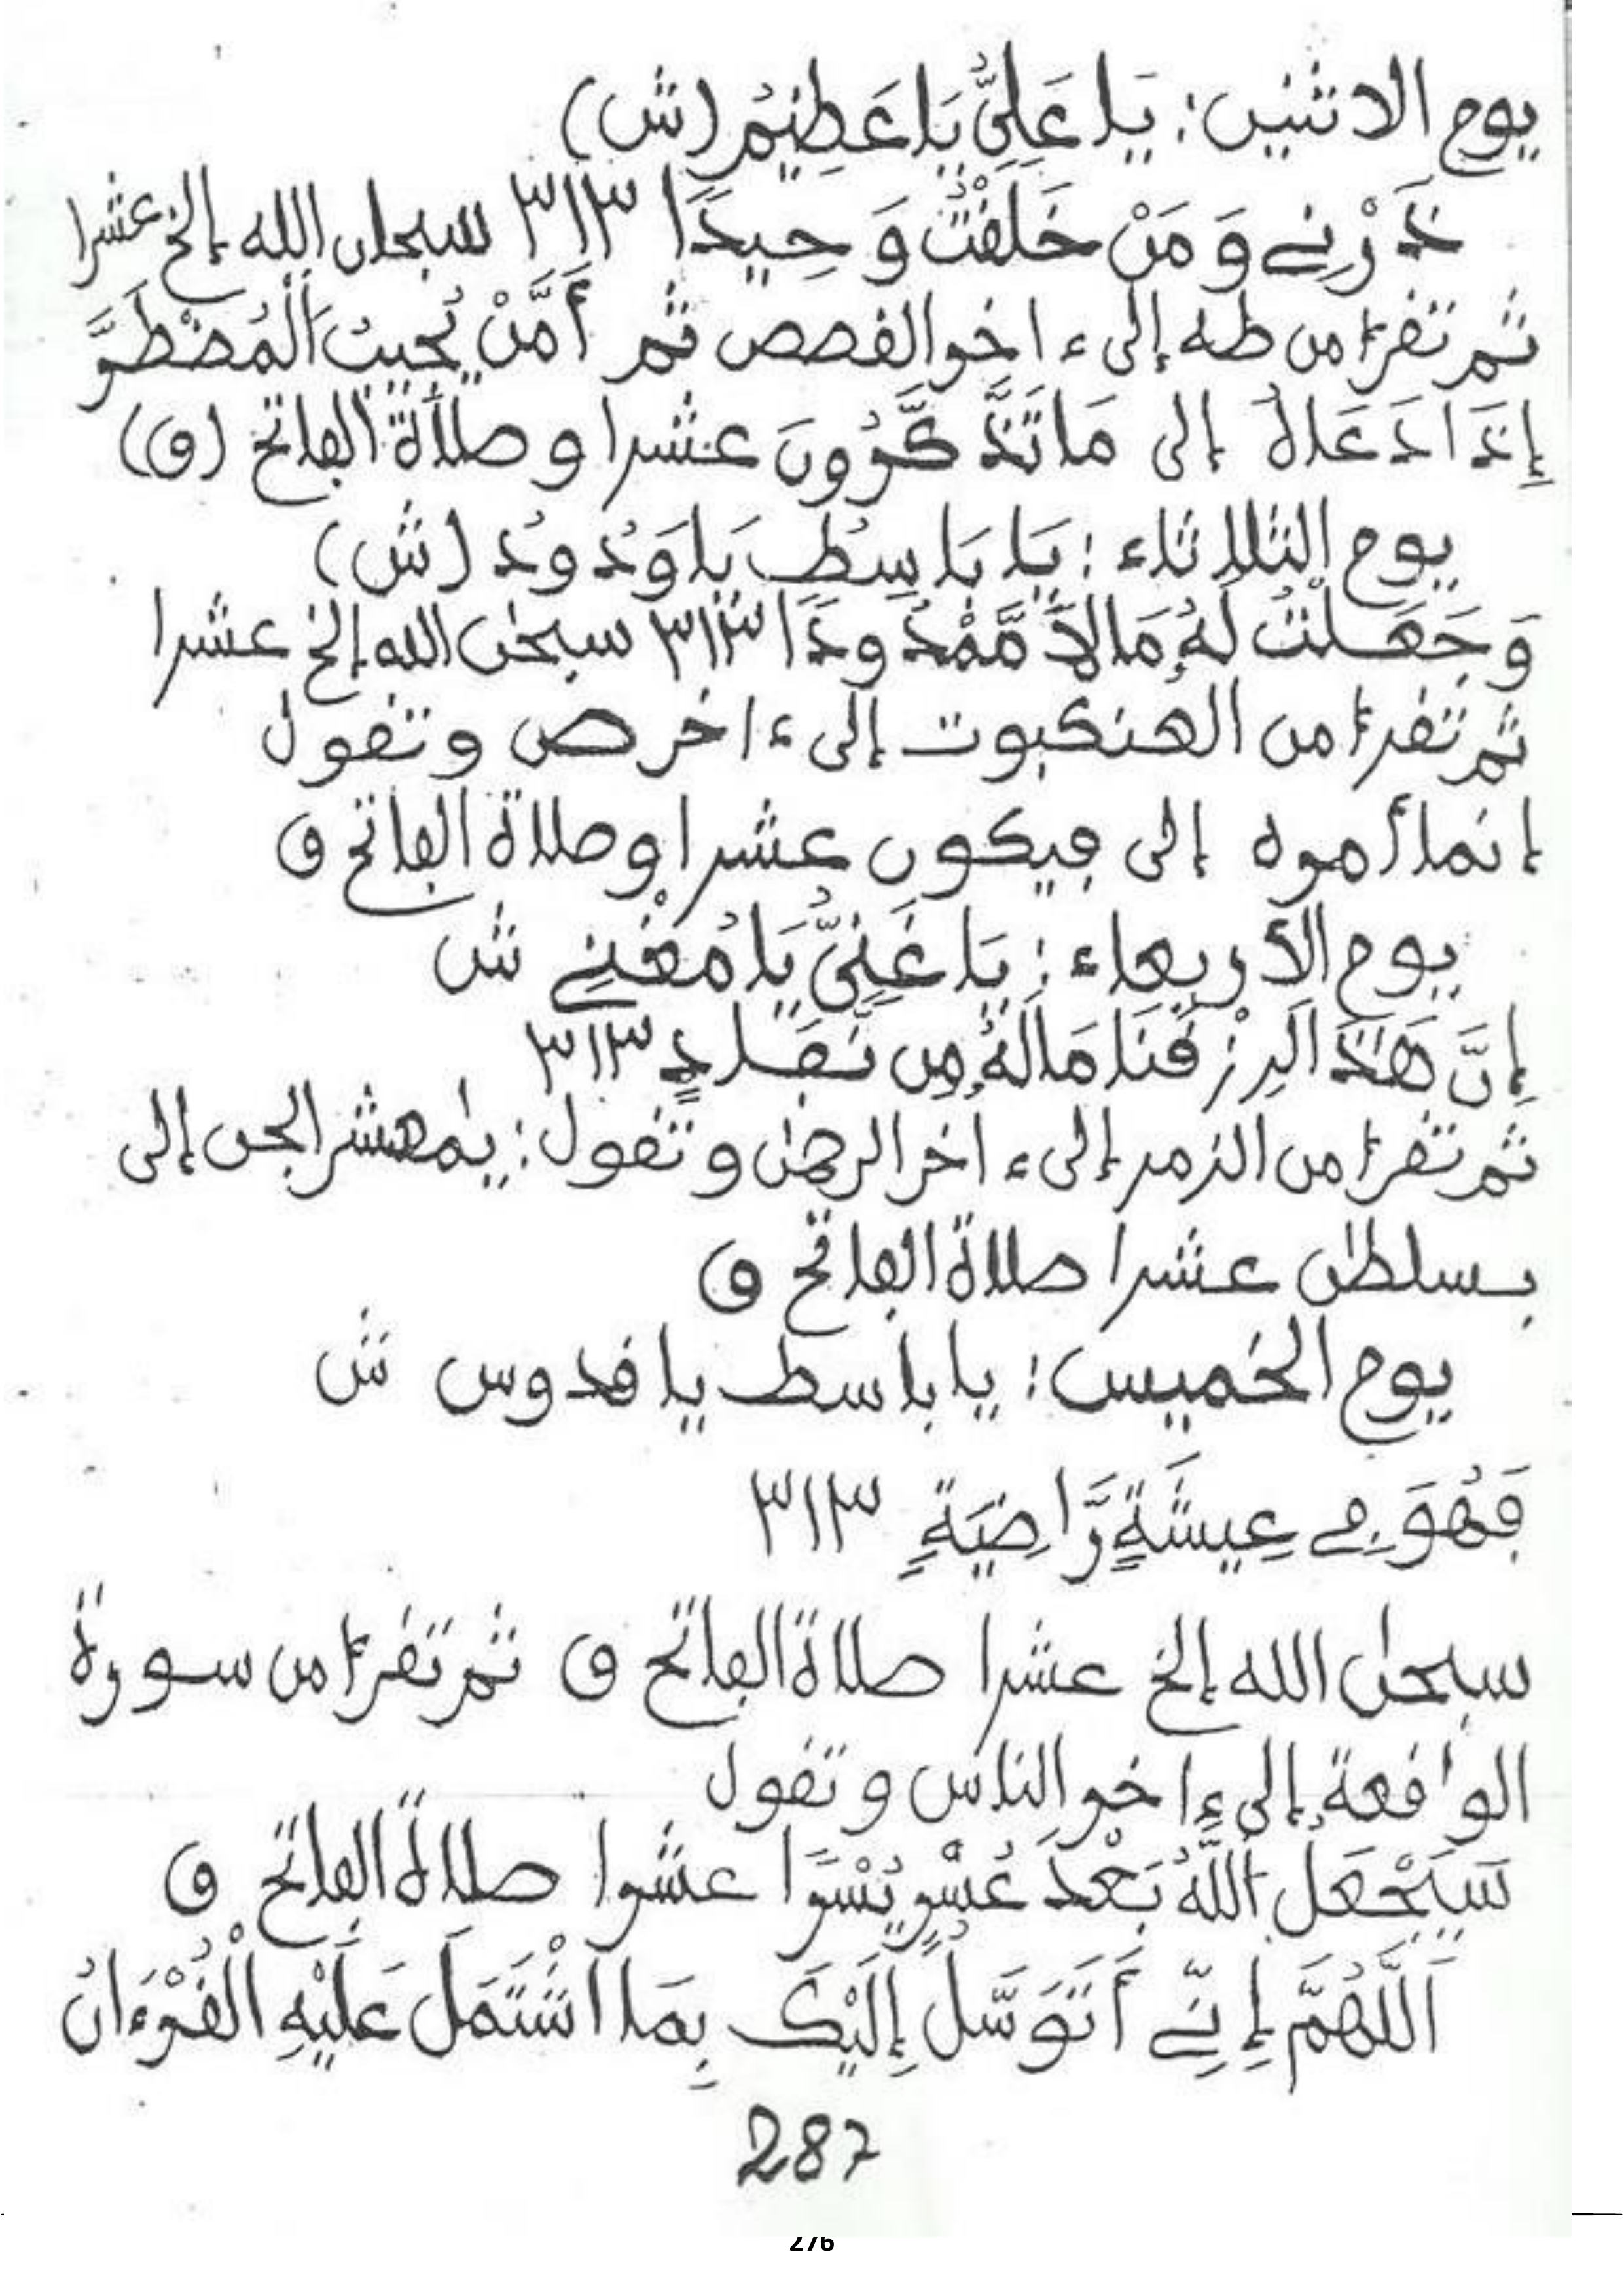 يوم الاثنين: يَا عَلِيُّ يَا عَظِيمُ (ش)
ذَرْنِے وَمَنْ خَلَقْتُ وَحِيدًا ٣١٣ سبحان الله إلخ عشرا
ثم تقرأ من طه إلى ءاخر القصص ثم أَمَّنْ يُّجِيبُ الْمُضْطَرَّ
إِذَا دَعَاهُ إلى مَا تَذَّكَّرُونَ عشرا وصلاة الفاتح (ق)
يوم الثلاثاء: يَا بَاسِطُ يَا وَدُودُ (ش)
وَجَعَلْتُ لَهُ مَالًا مَّمْدُودًا ٣١٣ سبحٰن الله إلخ عشرا
ثم تقرأ من العنكبوت إلى ءاخر ص وتقول
إنما أمره إلى فيكون عشرا وصلاة الفاتح ق
يوم الأربعاء: يَا غَنِيُّ يَا مُغْنِے ش
إِنَّ هَٰذَا لَرِزْقُنَا مَا لَهُ مِن نَّفَادٍ ٣١٣
ثم تقرأ من الزمر إلى ءاخر الرحمٰن وتقول: يٰمعشر الجن إلى
بسلطٰن عشرا صلاة الفاتح ق
يوم الخميس: يا باسط يا قدوس ش
فَهُوَ فِے عِيشَةٍ رَّاضِيَةٍ ٣١٣
سبحٰن الله إلخ عشرا صلاة الفاتح ق ثم تقرأ من سورة
الواقعة إلى ءاخر الناس وتقول
سَيَجْعَلُ اللَّهُ بَعْدَ عُسْرٍ يُسْرًا عشرا صلاة الفاتح ق
اَللَّهُمَّ إِنِّے أَتَوَسَّلُ إِلَيْكَ بِمَا اشْتَمَلَ عَلَيْهِ الْقُرْءَانُ
287
276